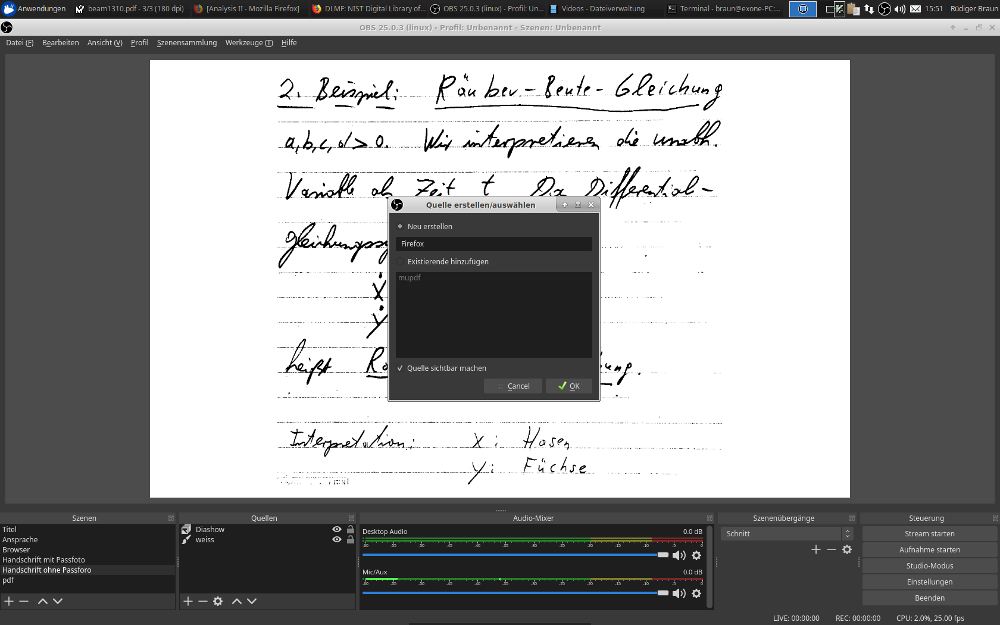 Anwendungen
beam1310.pdf - 3/3 (180 dpi)
[Analysis II - Mozilla Firefox]
DLMF: NIST Digital Library of...
OBS 25.0.3 (linux) - Profil: Un...
Videos - Dateiverwaltung
Terminal - braun@exone-PC:...
15:51
Rüdiger Braun
OBS 25.0.3 (linux) - Profil: Unbenannt - Szenen: Unbenannt
Datei (F) Bearbeiten Ansicht (V) Profil Szenensammlung Werkzeuge (T) Hilfe
2. Beispiel: Räuber-Beute-Gleichung
a,b,c,d > 0. Wir interpretieren die unabh.
Variable als Zeit t Das Differential-
gleichungss
Quelle erstellen/auswählen
Neu erstellen
Firefox
Existierende hinzufügen
mupdf
Quelle sichtbar machen
Cancel OK
ẋ
ẏ
heißt Rä ung.
Interpretation: x: Hasen
y: Füchse
Szenen
Titel
Ansprache
Browser
Handschrift mit Passfoto
Handschrift ohne Passforo
pdf
Quellen
Diashow
weiss
Audio-Mixer
Desktop Audio 0.0 dB
Mic/Aux 0.0 dB
Szenenübergänge
Schnitt
Steuerung
Stream starten
Aufnahme starten
Studio-Modus
Einstellungen
Beenden
LIVE: 00:00:00 REC: 00:00:00 CPU: 2.0%, 25.00 fps